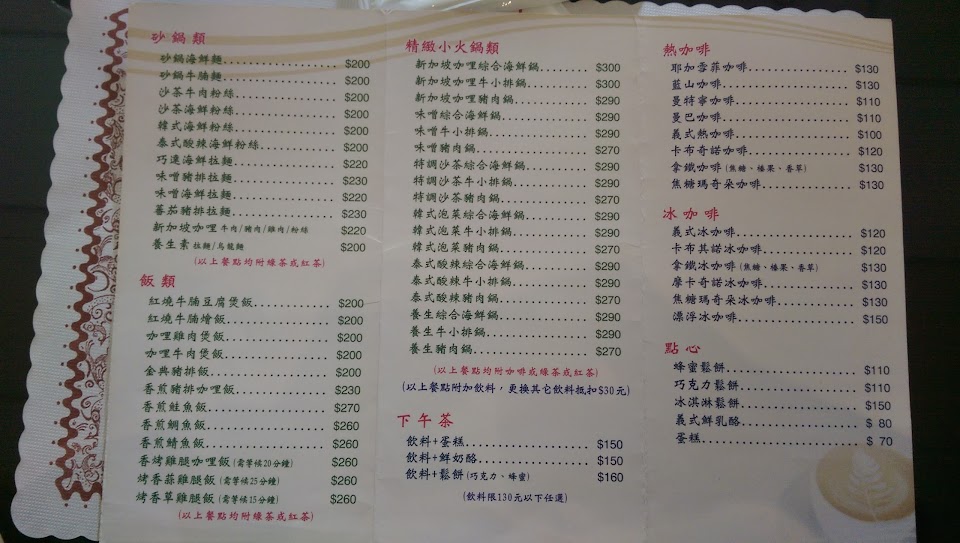 砂鍋類
砂鍋海鮮麵 $200
砂鍋牛腩麵 $200
沙茶牛肉粉絲 $200
沙茶海鮮粉絲 $200
韓式海鮮粉絲 $200
泰式酸辣海鮮粉絲 $200
巧達海鮮拉麵 $220
味噌豬排拉麵 $230
味噌海鮮拉麵 $220
蕃茄豬排拉麵 $230
新加坡咖哩 牛肉/豬肉/雞肉/粉絲 $220
養生素 拉麵/烏龍麵 $200
(以上餐點均附綠茶或紅茶)
飯類
紅燒牛腩豆腐煲飯 $200
紅燒牛腩燴飯 $200
咖哩雞肉煲飯 $200
咖哩牛肉煲飯 $200
金典豬排飯 $200
香煎豬排咖哩飯 $230
香煎鮭魚飯 $270
香煎鯛魚飯 $260
香煎鯖魚飯 $260
香烤雞腿咖哩飯(需等候20分鐘) $260
烤香蒜雞腿飯(需等候25分鐘) $260
烤香草雞腿飯(需等候15分鐘) $260
(以上餐點均附綠茶或紅茶)
精緻小火鍋類
新加坡咖哩綜合海鮮鍋 $300
新加坡咖哩牛小排鍋 $300
新加坡咖哩豬肉鍋 $290
味噌綜合海鮮鍋 $290
味噌牛小排鍋 $290
味噌豬肉鍋 $270
特調沙茶綜合海鮮鍋 $290
特調沙茶牛小排鍋 $290
特調沙茶豬肉鍋 $270
韓式泡菜綜合海鮮鍋 $290
韓式泡菜牛小排鍋 $290
韓式泡菜豬肉鍋 $270
泰式酸辣綜合海鮮鍋 $290
泰式酸辣牛小排鍋 $290
泰式酸辣豬肉鍋 $270
養生綜合海鮮鍋 $290
養生牛小排鍋 $290
養生豬肉鍋 $270
(以上餐點均附咖啡或綠茶或紅茶)
(以上餐點附加飲料，更換其它飲料抵扣$30元)
下午茶
飲料+蛋糕 $150
飲料+鮮奶酪 $150
飲料+鬆餅(巧克力、蜂蜜) $160
(飲料限130元以下任選)
熱咖啡
耶加雪菲咖啡 $130
藍山咖啡 $130
曼特寧咖啡 $110
曼巴咖啡 $110
義式熱咖啡 $100
卡布奇諾咖啡 $120
拿鐵咖啡(焦糖、榛果、香草) $130
焦糖瑪奇朵咖啡 $130
冰咖啡
義式冰咖啡 $120
卡布其諾冰咖啡 $120
拿鐵冰咖啡(焦糖、榛果、香草) $130
摩卡奇諾冰咖啡 $130
焦糖瑪奇朵冰咖啡 $130
漂浮冰咖啡 $150
點心
蜂蜜鬆餅 $110
巧克力鬆餅 $110
冰淇淋鬆餅 $150
義式鮮乳酪 $ 80
蛋糕 $ 70